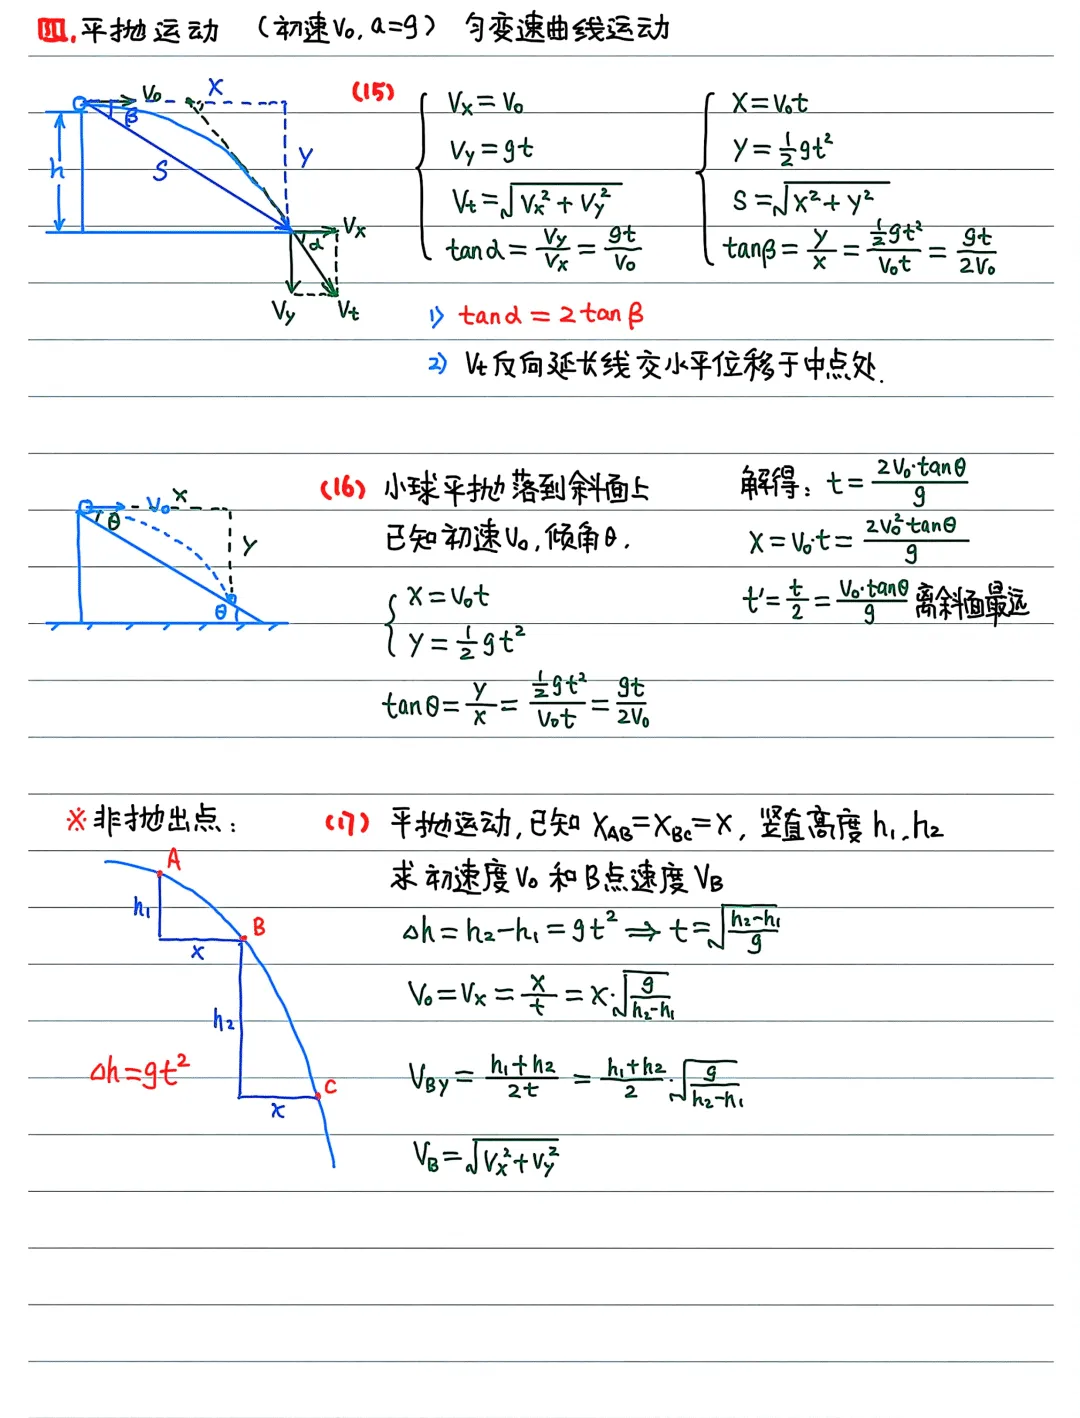 四. 平抛运动 （初速V₀, a=g） 匀变速曲线运动
V₀ X
β
h S Y
Vx
α
Vy Vt
(15)
Vx = V₀
Vy = gt
Vt = √(Vx² + Vy²)
tanα = Vy/Vx = gt/V₀
X = V₀t
Y = ½gt²
S = √(X² + Y²)
tanβ = Y/X = ½gt²/V₀t = gt/2V₀
1) tanα = 2tanβ
2) Vt反向延长线交水平位移于中点处.
V₀ X
θ
Y
θ
(16) 小球平抛落到斜面上
已知初速V₀, 倾角θ.
X = V₀t
Y = ½gt²
tanθ = Y/X = ½gt²/V₀t = gt/2V₀
解得: t = 2V₀·tanθ/g
X = V₀·t = 2V₀²·tanθ/g
t' = t/2 = V₀·tanθ/g 离斜面最远
※非抛出点:
A
h₁
B
x
h₂
Δh=gt²
C
x
(17) 平抛运动, 已知 X_AB=X_BC=X, 竖直高度 h₁、h₂
求初速度V₀ 和B点速度V_B
Δh = h₂-h₁ = gt² ⇒ t = √((h₂-h₁)/g)
V₀ = Vx = X/t = X·√(g/(h₂-h₁))
V_By = (h₁+h₂)/2t = (h₁+h₂)/2·√(g/(h₂-h₁))
V_B = √(Vx²+Vy²)